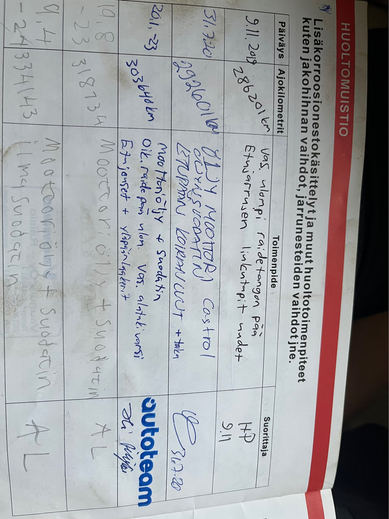 HUOLTOMUISTIO
*) Lisäkorroosionestokäsittelyt ja muut huoltotoimenpiteet
kuten jakohihnan vaihdot, jarrunesteiden vaihdot jne.
Päiväys Ajokilometrit Toimenpide Suorittaja
9.11.2019 286201 km Vas. ulompi raidetangon pää HP
Etujarrujen linkutapit uudet 9.11
31.7.20 292601 km ÖLJY MOOTTORI Castrol
ÖLJYNSUODATIN
ETUPÄÄN KORAHOLUT + taka 31.7.20
201.-23 303640km moottoriöljy + suodatin autoteam
Oik. raidepää ulom. Vas. alatukivarsi
Etujouset +
19.8 -23 318734 Moottoriöljy + Suodatin AL
9.4 -24 334143 Moottoriöljy + Suodatin AL
ilmasuodatin